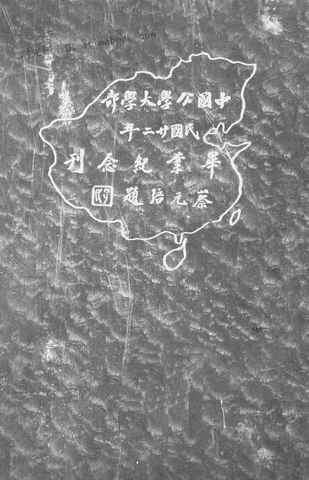 中國公學大學部
民國廿二年
畢業紀念刊
蔡元培題